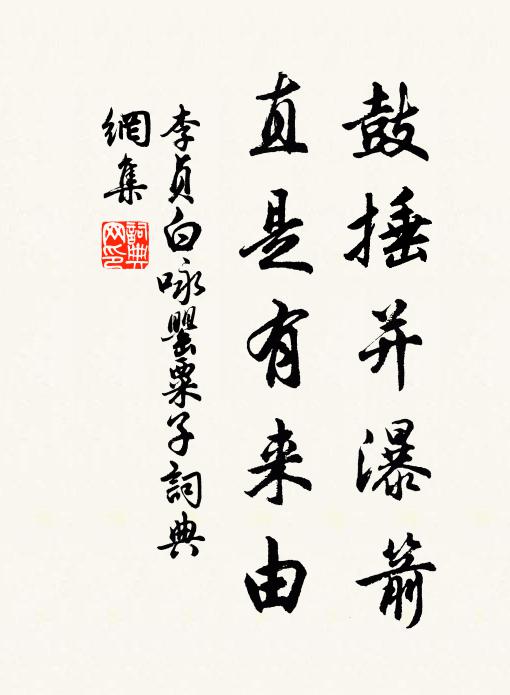 鼓捶并瀑箭
直是有来由
李貞白咏罌粟子詞典
網集
詞典網印